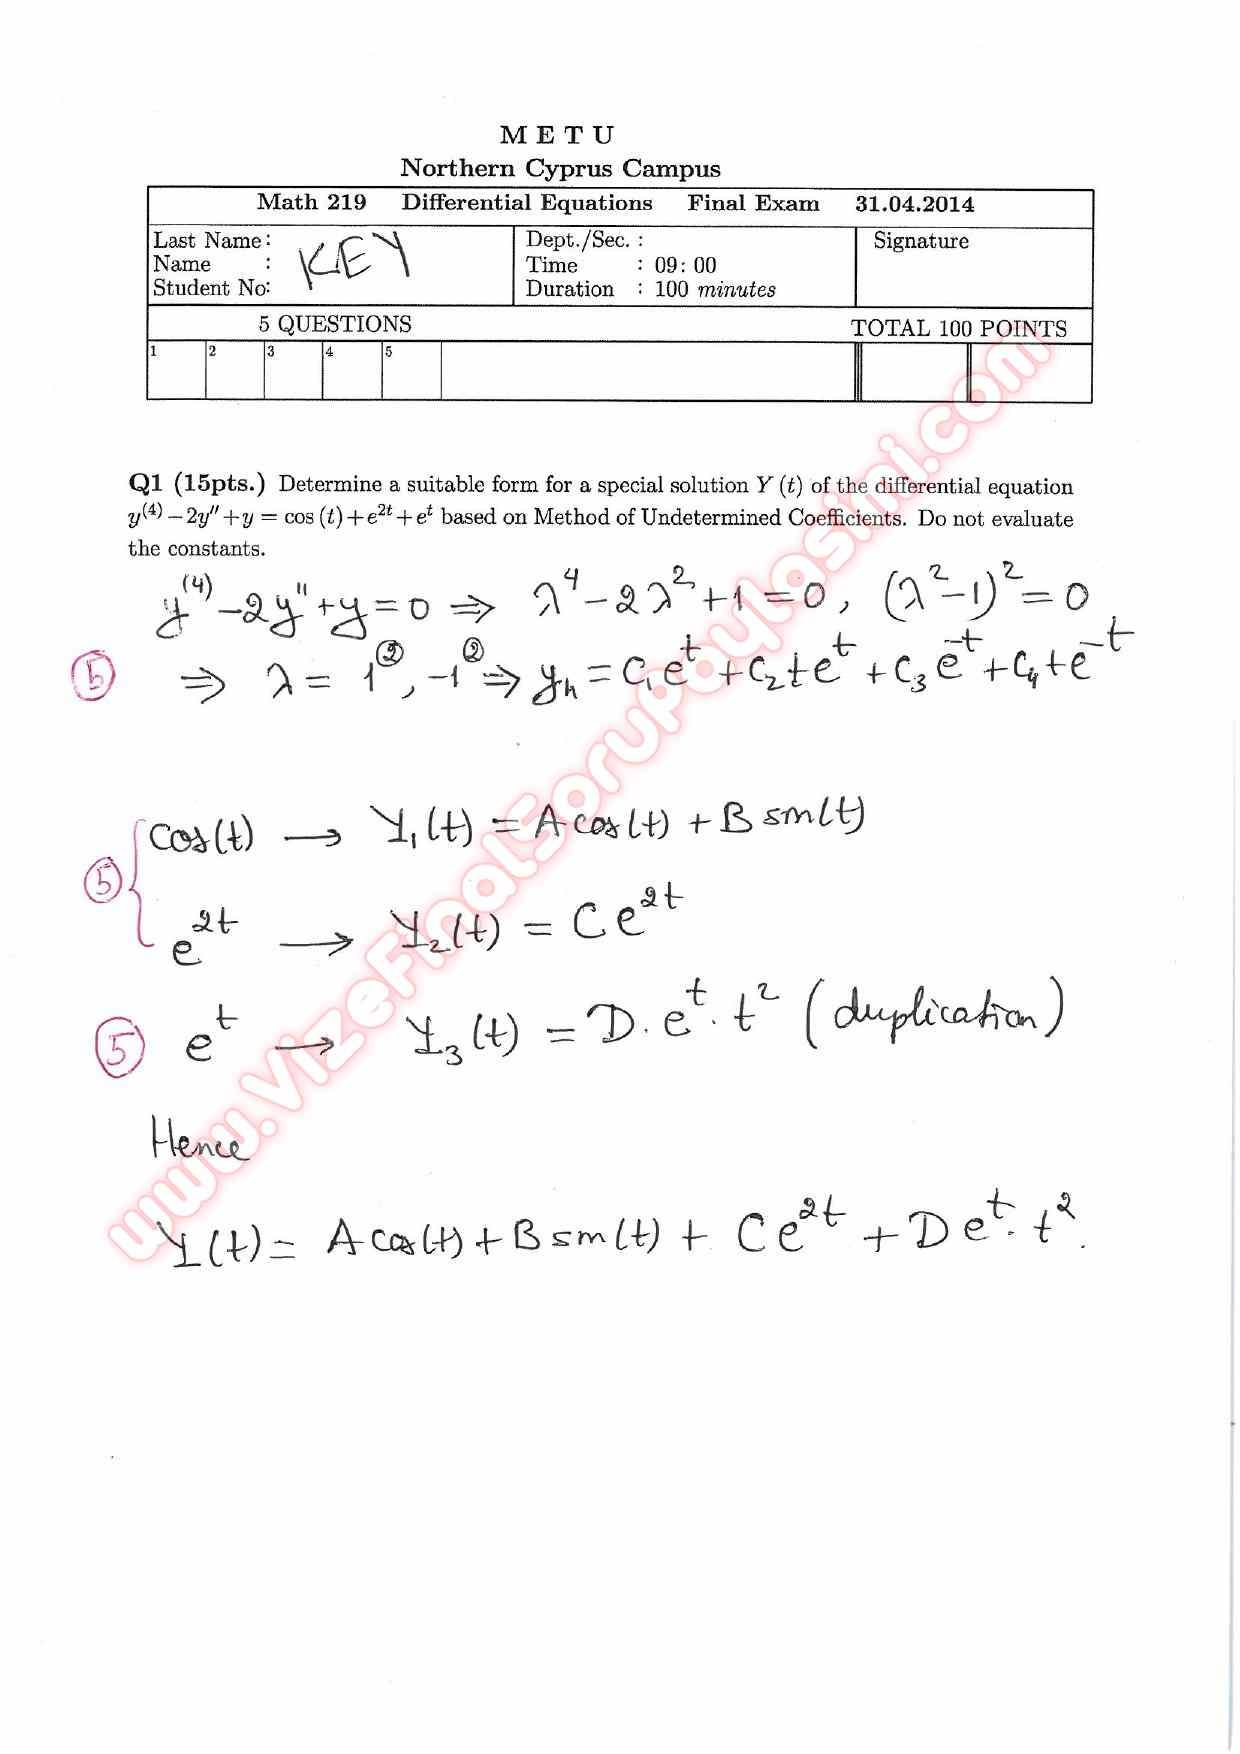 M E T U
Northern Cyprus Campus
Math 219 Differential Equations Final Exam 31.04.2014
Last Name: KEY Dept./Sec. : Signature
Name : Time : 09: 00
Student No: Duration : 100 minutes
5 QUESTIONS TOTAL 100 POINTS
1 2 3 4 5
Q1 (15pts.) Determine a suitable form for a special solution Y (t) of the differential equation
y⁽⁴⁾ − 2y″ + y = cos (t) + e²ᵗ + eᵗ based on Method of Undetermined Coefficients. Do not evaluate
the constants.
y⁽⁴⁾ − 2y″ + y = 0 ⇒ λ⁴ − 2λ² + 1 = 0, (λ² − 1)² = 0
⑤ ⇒ λ = 1^②, −1^② ⇒ y_h = C₁eᵗ + C₂teᵗ + C₃e⁻ᵗ + C₄te⁻ᵗ
cos(t) → Y₁(t) = A cos(t) + B sin(t)
⑤
e²ᵗ → Y₂(t) = C e²ᵗ
⑤ eᵗ → Y₃(t) = D. eᵗ. t² (duplication)
Hence
Y(t) = A cos(t) + B sin(t) + C e²ᵗ + D eᵗ. t².
www.VizeFinalSoruPaylasimi.com